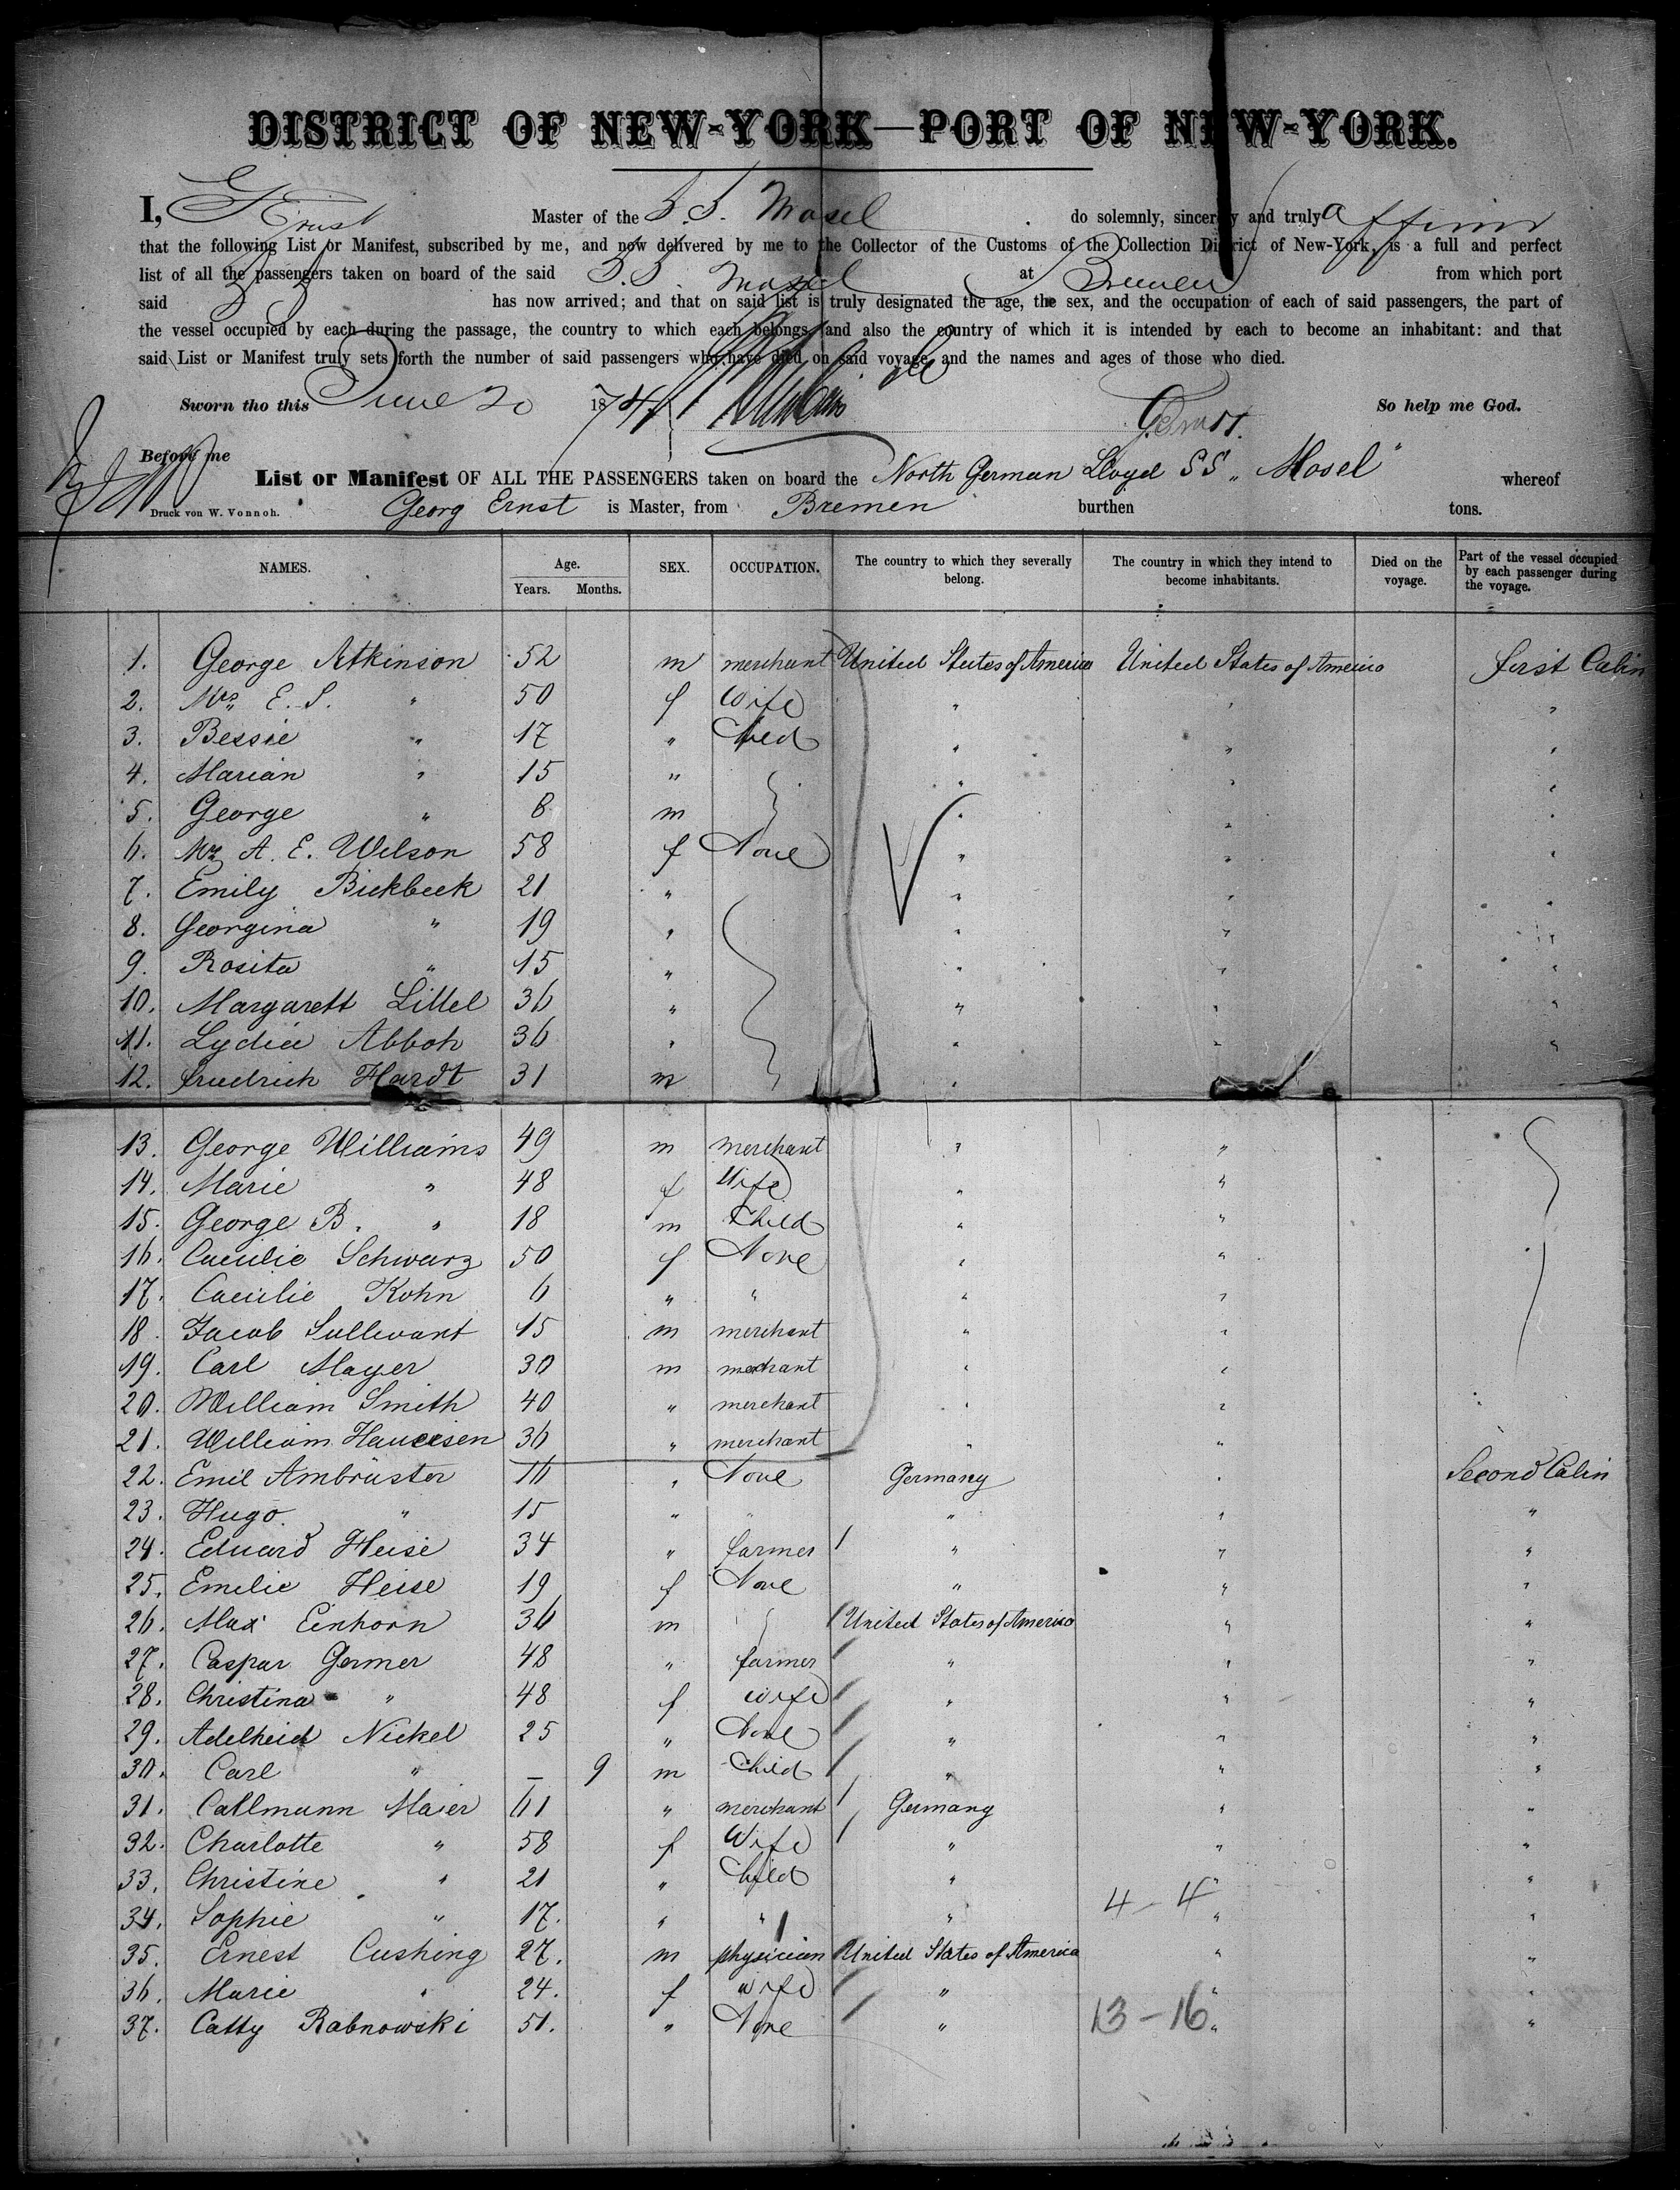 DISTRICT OF NEW-YORK—PORT OF NEW-YORK.
I, G Ernst Master of the S.S. Mosel do solemnly, sincerely and truly affirm
that the following List or Manifest, subscribed by me, and now delivered by me to the Collector of the Customs of the Collection District of New-York, is a full and perfect
list of all the passengers taken on board of the said S.S. Mosel at Bremen from which port
said S.S. has now arrived; and that on said list is truly designated the age, the sex, and the occupation of each of said passengers, the part of
the vessel occupied by each during the passage, the country to which each belongs, and also the country of which it is intended by each to become an inhabitant: and that
said List or Manifest truly sets forth the number of said passengers who have died on said voyage, and the names and ages of those who died.
Sworn tho this June 20 1874 G. Ernst. So help me God.
Before me
List or Manifest OF ALL THE PASSENGERS taken on board the North German Lloyd SS „ Mosel" whereof
Druck von W. Vonnoh. Georg Ernst is Master, from Bremen burthen tons.
NAMES. Age. Years. Months. SEX. OCCUPATION. The country to which they severally belong. The country in which they intend to become inhabitants. Died on the voyage. Part of the vessel occupied by each passenger during the voyage.
1. George Atkinson 52 m merchant United States of America United States of America first Cabin
2. Mrs. E. S. " 50 f Wife " " "
3. Bessie " 17 " Child " " "
4. Marian " 15 " " " "
5. George " 8 m " " "
6. Mrs A. E. Wilson 58 f None " " "
7. Emily Bickbeck 21 " " " "
8. Georgina " 19 " " " "
9. Rosita " 15 " " " "
10. Margarett Littel 36 " " " "
11. Lydia Abboh 36 " " " "
12. Friedrich Hardt 31 m "
13. George Williams 49 m merchant " "
14. Marie " 48 f Wife " "
15. George B. " 18 m Child " "
16. Caecilie Schwarz 50 f None " "
17. Caecilie Kohn 6 " " " "
18. Jacob Sullivant 15 m merchant " "
19. Carl Mayer 30 m merchant " "
20. William Smith 40 " merchant " "
21. William Haueisen 36 " merchant " "
22. Emil Ambrüster 16 " None Germany " Second Cabin
23. Hugo " 15 " " " " "
24. Eduard Heise 34 " farmer " " "
25. Emilie Heise 19 f None " " "
26. Max Einhorn 36 m United States of America " "
27. Caspar Germer 48 " farmer " " "
28. Christina " 48 f wife " " "
29. Adelheid Nickel 25 " None " " "
30. Carl " — 9 m Child " " "
31. Callmann Maier 61 " merchant Germany " "
32. Charlotte " 58 f Wife " " "
33. Christine " 21 " Child " " "
34. Sophie " 17. " " " 4-4 " "
35. Ernest Cushing 27. m physician United States of America " "
36. Marie " 24. f wife " " "
37. Catty Rabnowski 51. " None " 13-16 " "